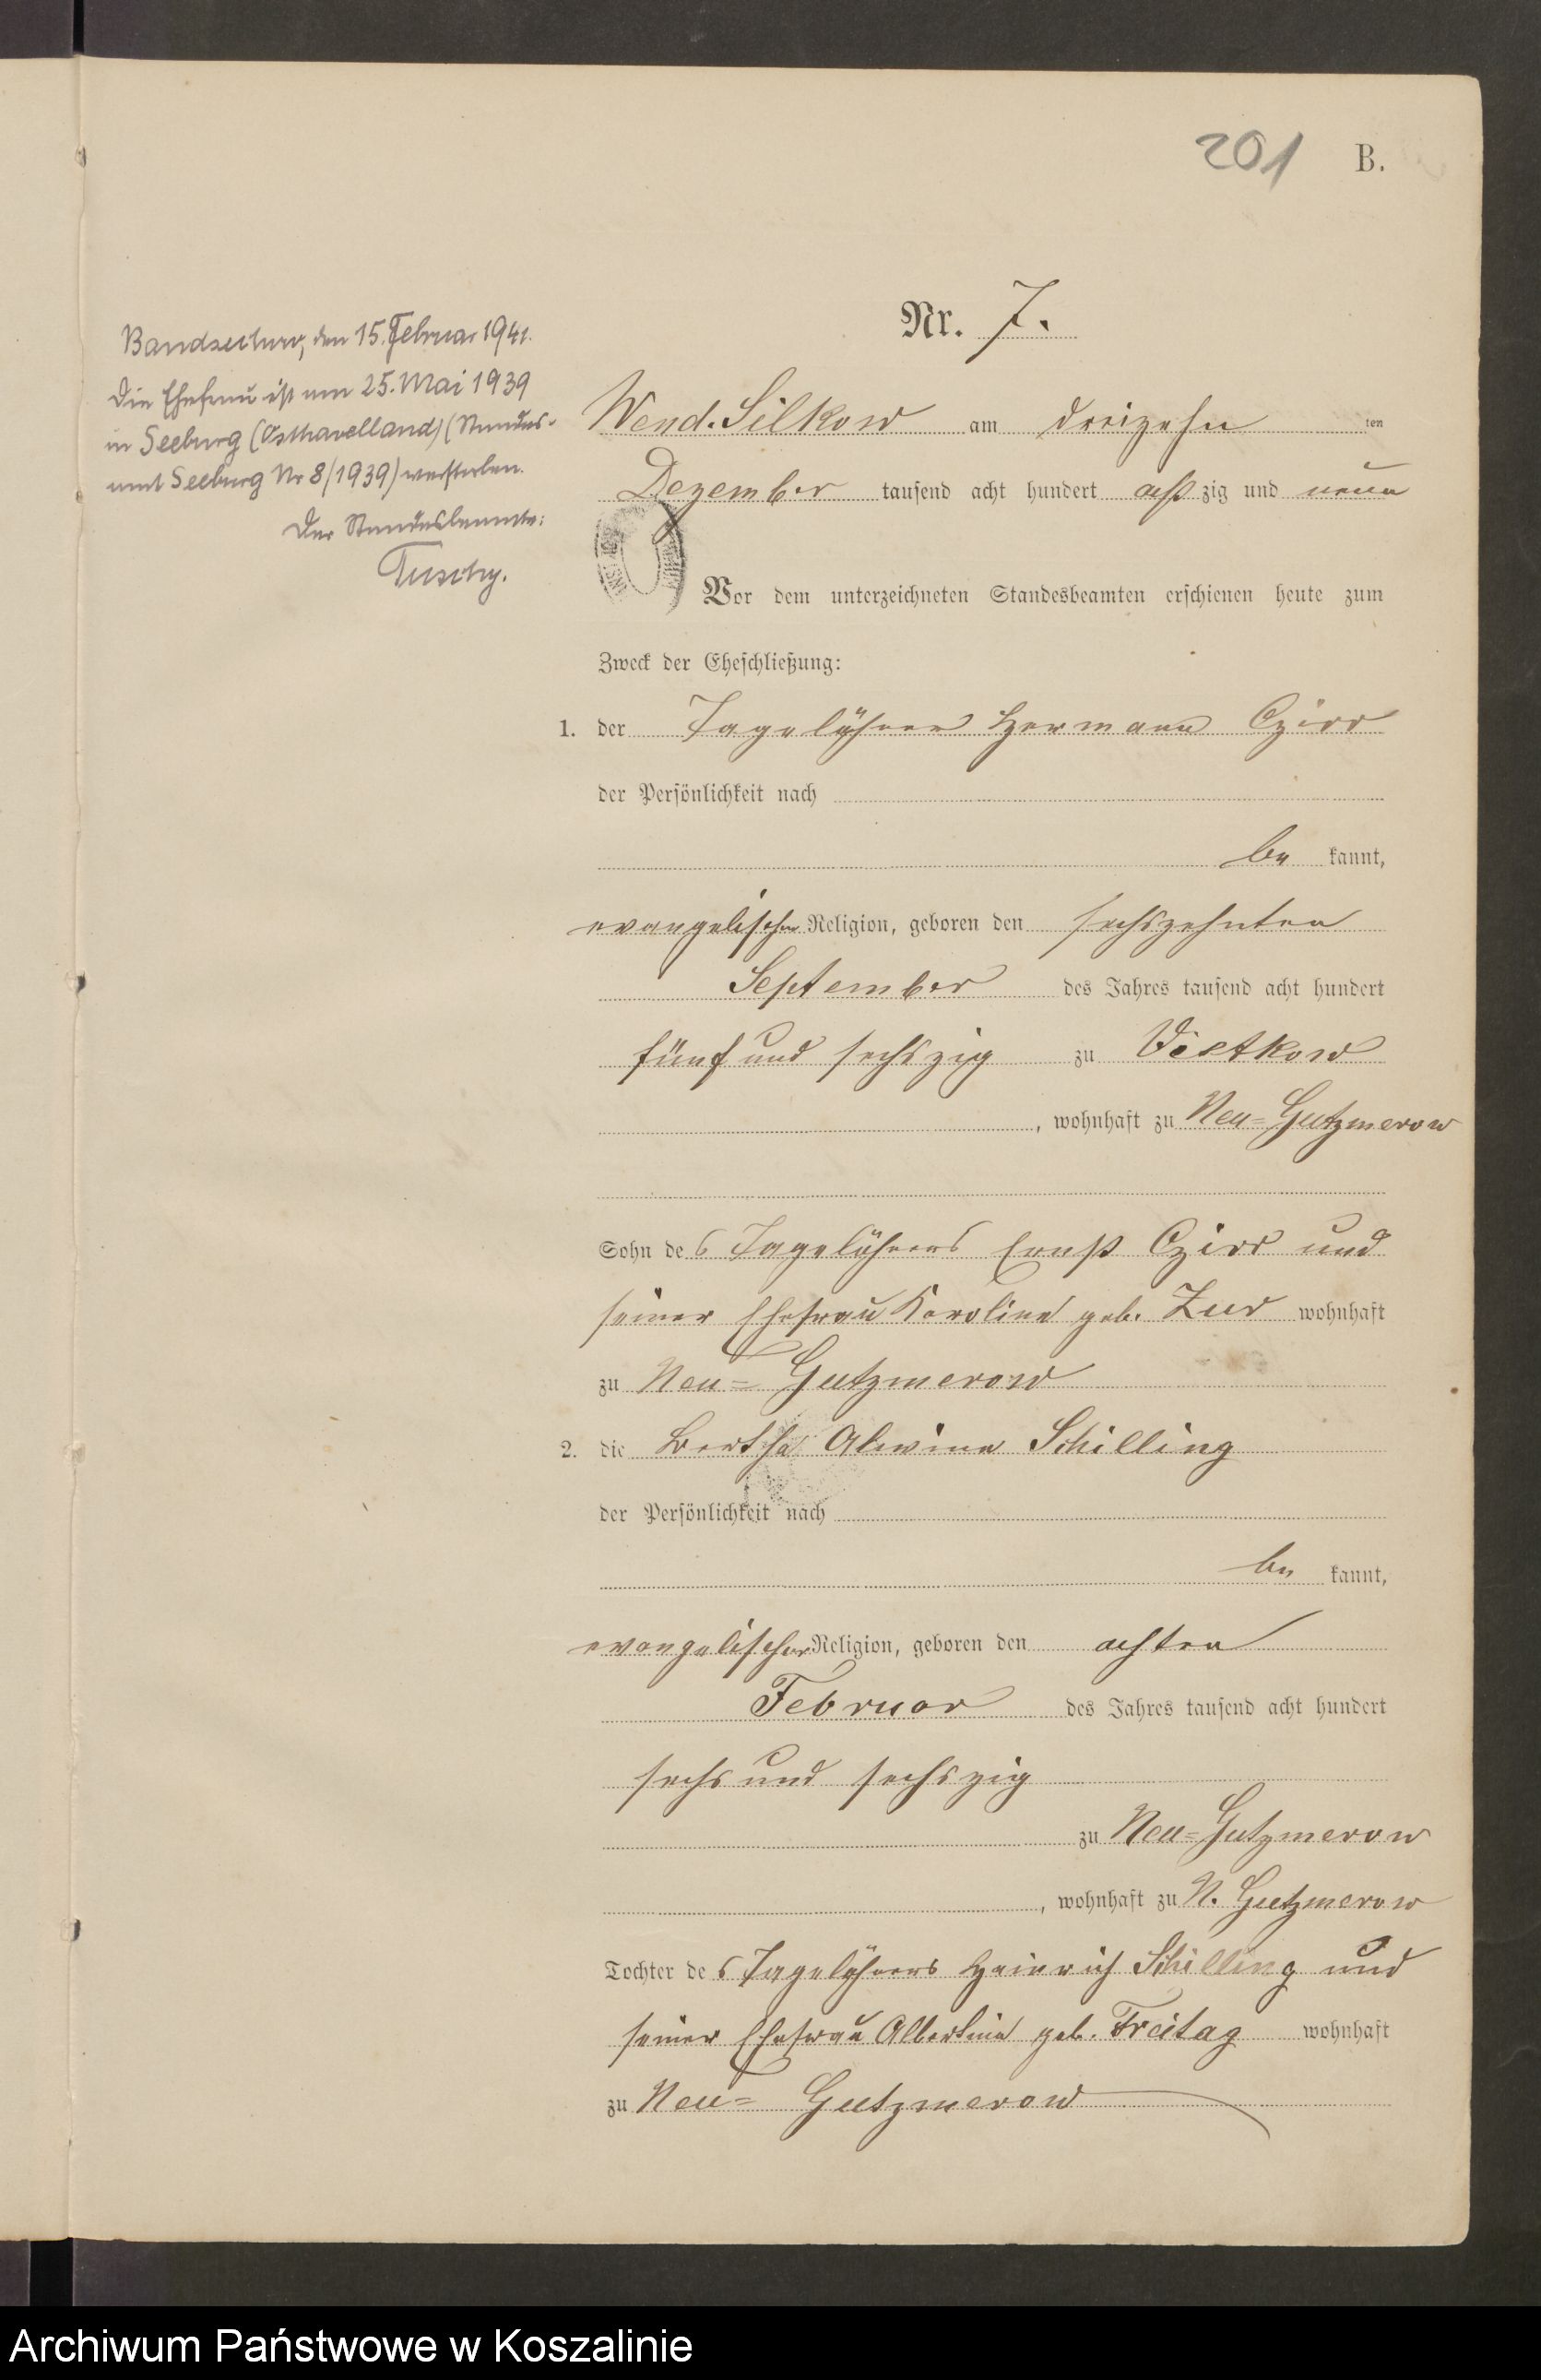 201 B.
Nr. 7.
Bandsechow, den 15. Februar 1941.
Die Ehefrau ist am 25. Mai 1939
in Seeburg (Osthavelland) (Standes-
amt Seeburg Nr 8/1939) verstorben.
Der Standesbeamte:
Wend. Silkow am dreizehn ten
Dezember tausend acht hundert acht zig und neun
Vor dem unterzeichneten Standesbeamten erschienen heute zum
Zweck der Eheschließung:
1. der Tagelöhner Hermann Czirr
der Persönlichkeit nach
be kannt,
evangelischer Religion, geboren den sechszehnten
September des Jahres tausend acht hundert
fünf und sechszig zu Vietkow
, wohnhaft zu Neu=Gutzmerow
Sohn des Tagelöhners Ernst Czirr und
seiner Ehefrau Karoline geb. Zur wohnhaft
zu Neu=Gutzmerow
2. die Bertha Alwine Schilling
der Persönlichkeit nach
be kannt,
evangelischer Religion, geboren den achten
Februar des Jahres tausend acht hundert
sechs und sechszig
zu Neu=Gutzmerow
, wohnhaft zu N. Gutzmerow
Tochter des Tagelöhners Heinrich Schilling und
seiner Ehefrau Albertine geb. Freitag wohnhaft
zu Neu=Gutzmerow
Archiwum Państwowe w Koszalinie